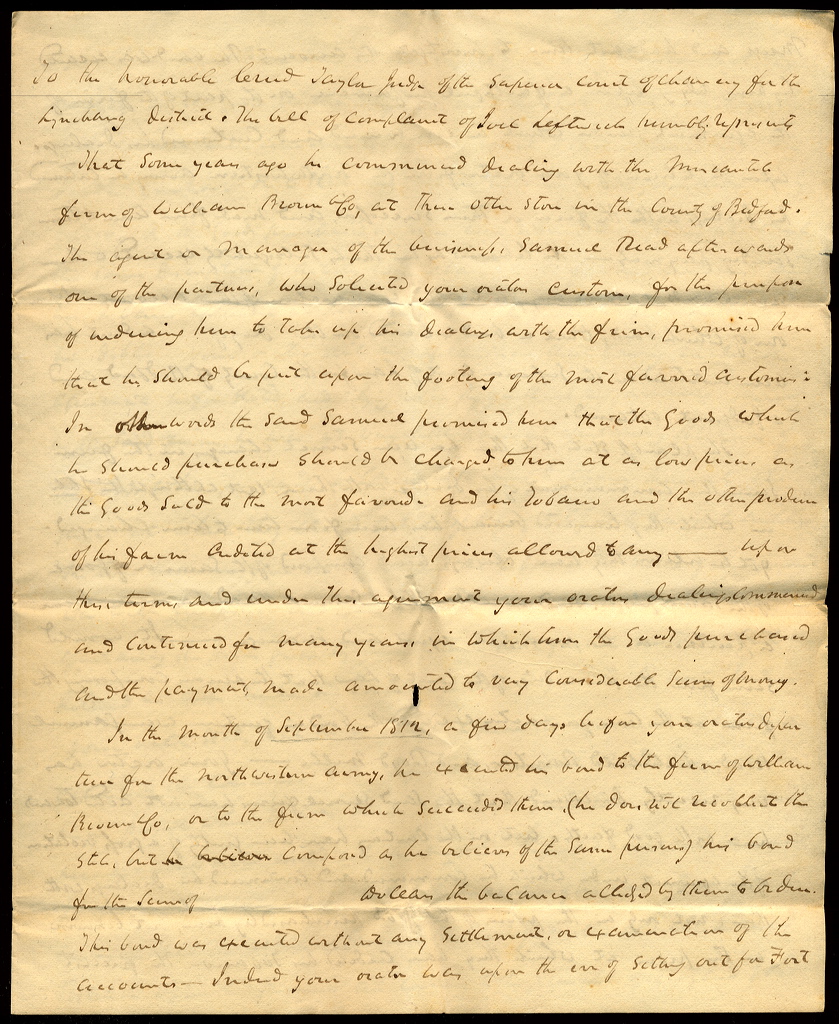 To the Honorable Creed Taylor Judge of the Superior Court of chancery for the
Lynchburg District. The bill of Complaint of Joel Leftwich humbly represents
That Some years ago he commenced dealing with the Mercantile
firm of William Brown &Co, at their other Store in the County of Bedford.
The agent or manager of the business, Samuel Read afterwards
one of the partners, who Solicited your orators custom, for the purpose
of inducing him to take up his dealings with the firm, promised him
that he Should be put upon the footing of the most favored customers:
In other words the Said Samuel promised him that the Goods which
he Should purchase Should be charged to him at as low prices as
the Goods Sold to the most favored. and his Tobacco and the other produce
of his farm credited at the highest prices allowed to any — upon
these terms, and under this agreement your orators dealings Commenced
and Continued for many years, in which time the Goods purchased
and the payments made amounted to very Considerable Sums of money.
In the month of September 1812, a few days before your orators depar
ture for the Northwestern army, he executed his bond to the firm of William
Brown &Co, or to the firm which Succeeded them, (he does not recollect the
Stile, but he believes Composed as he believes of the Same persons) his bond
for the Sum of Dollars the balance alledged by them to be due.
This bond was executed without any Settlement, or examination of the
accounts — Indeed your orator was upon the eve of Setting out for Fort